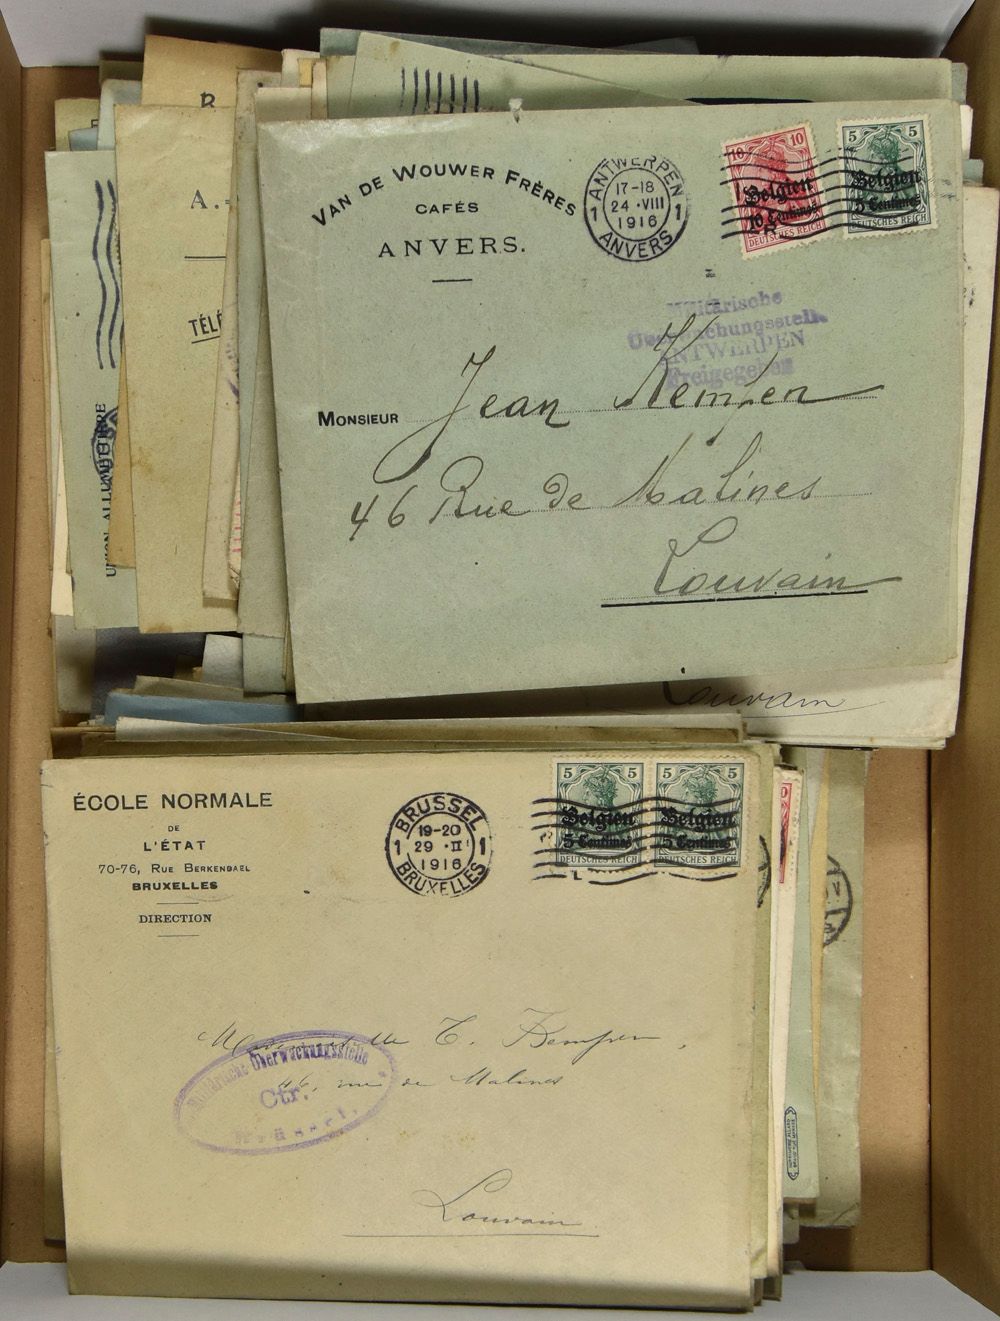 R
A.
TÉLÉ
UNION ALLUMETTIÈRE
VAN DE WOUWER FRÈRES
CAFÉS
ANVERS.
ANTWERPEN
17-18
24 ·VIII
1916
1 1
ANVERS
10 10
Belgien
10 Centimes
DEUTSCHES REICH
5 5
Belgien
5 Centimes
DEUTSCHES REICH
Militärische
Überwachungsstelle
ANTWERPEN
Freigegeben
MONSIEUR Jean Kempen
46 Rue de Malines
Louvain
Louvain
ÉCOLE NORMALE
DE
L'ÉTAT
70-76, RUE BERKENDAEL
BRUXELLES
DIRECTION
BRUSSEL
19-20
29 ·II
1916
1 1
BRUXELLES
5 5
Belgien
5 Centimes
DEUTSCHES REICH
5 5
Belgien
5 Centimes
DEUTSCHES REICH
Mademoiselle C. Kempen,
46, rue de Malines
Louvain
Militärische Überwachungsstelle
Ctr.
Brüssel.